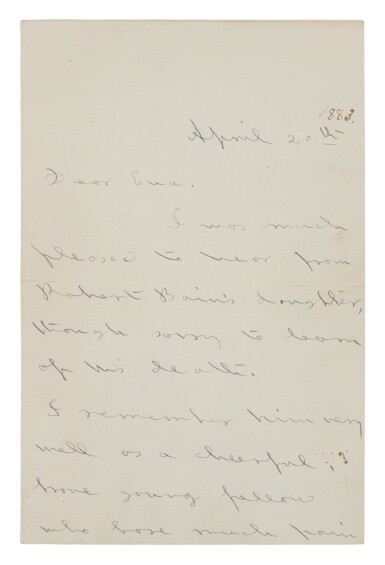 1883.
April 20th
Dear Eva.
I was much
pleased to hear from
Robert Bain's daughter,
though sorry to learn
of his death.
I remember him very
well as a cheerful, ?
brave young fellow
who bore much pain